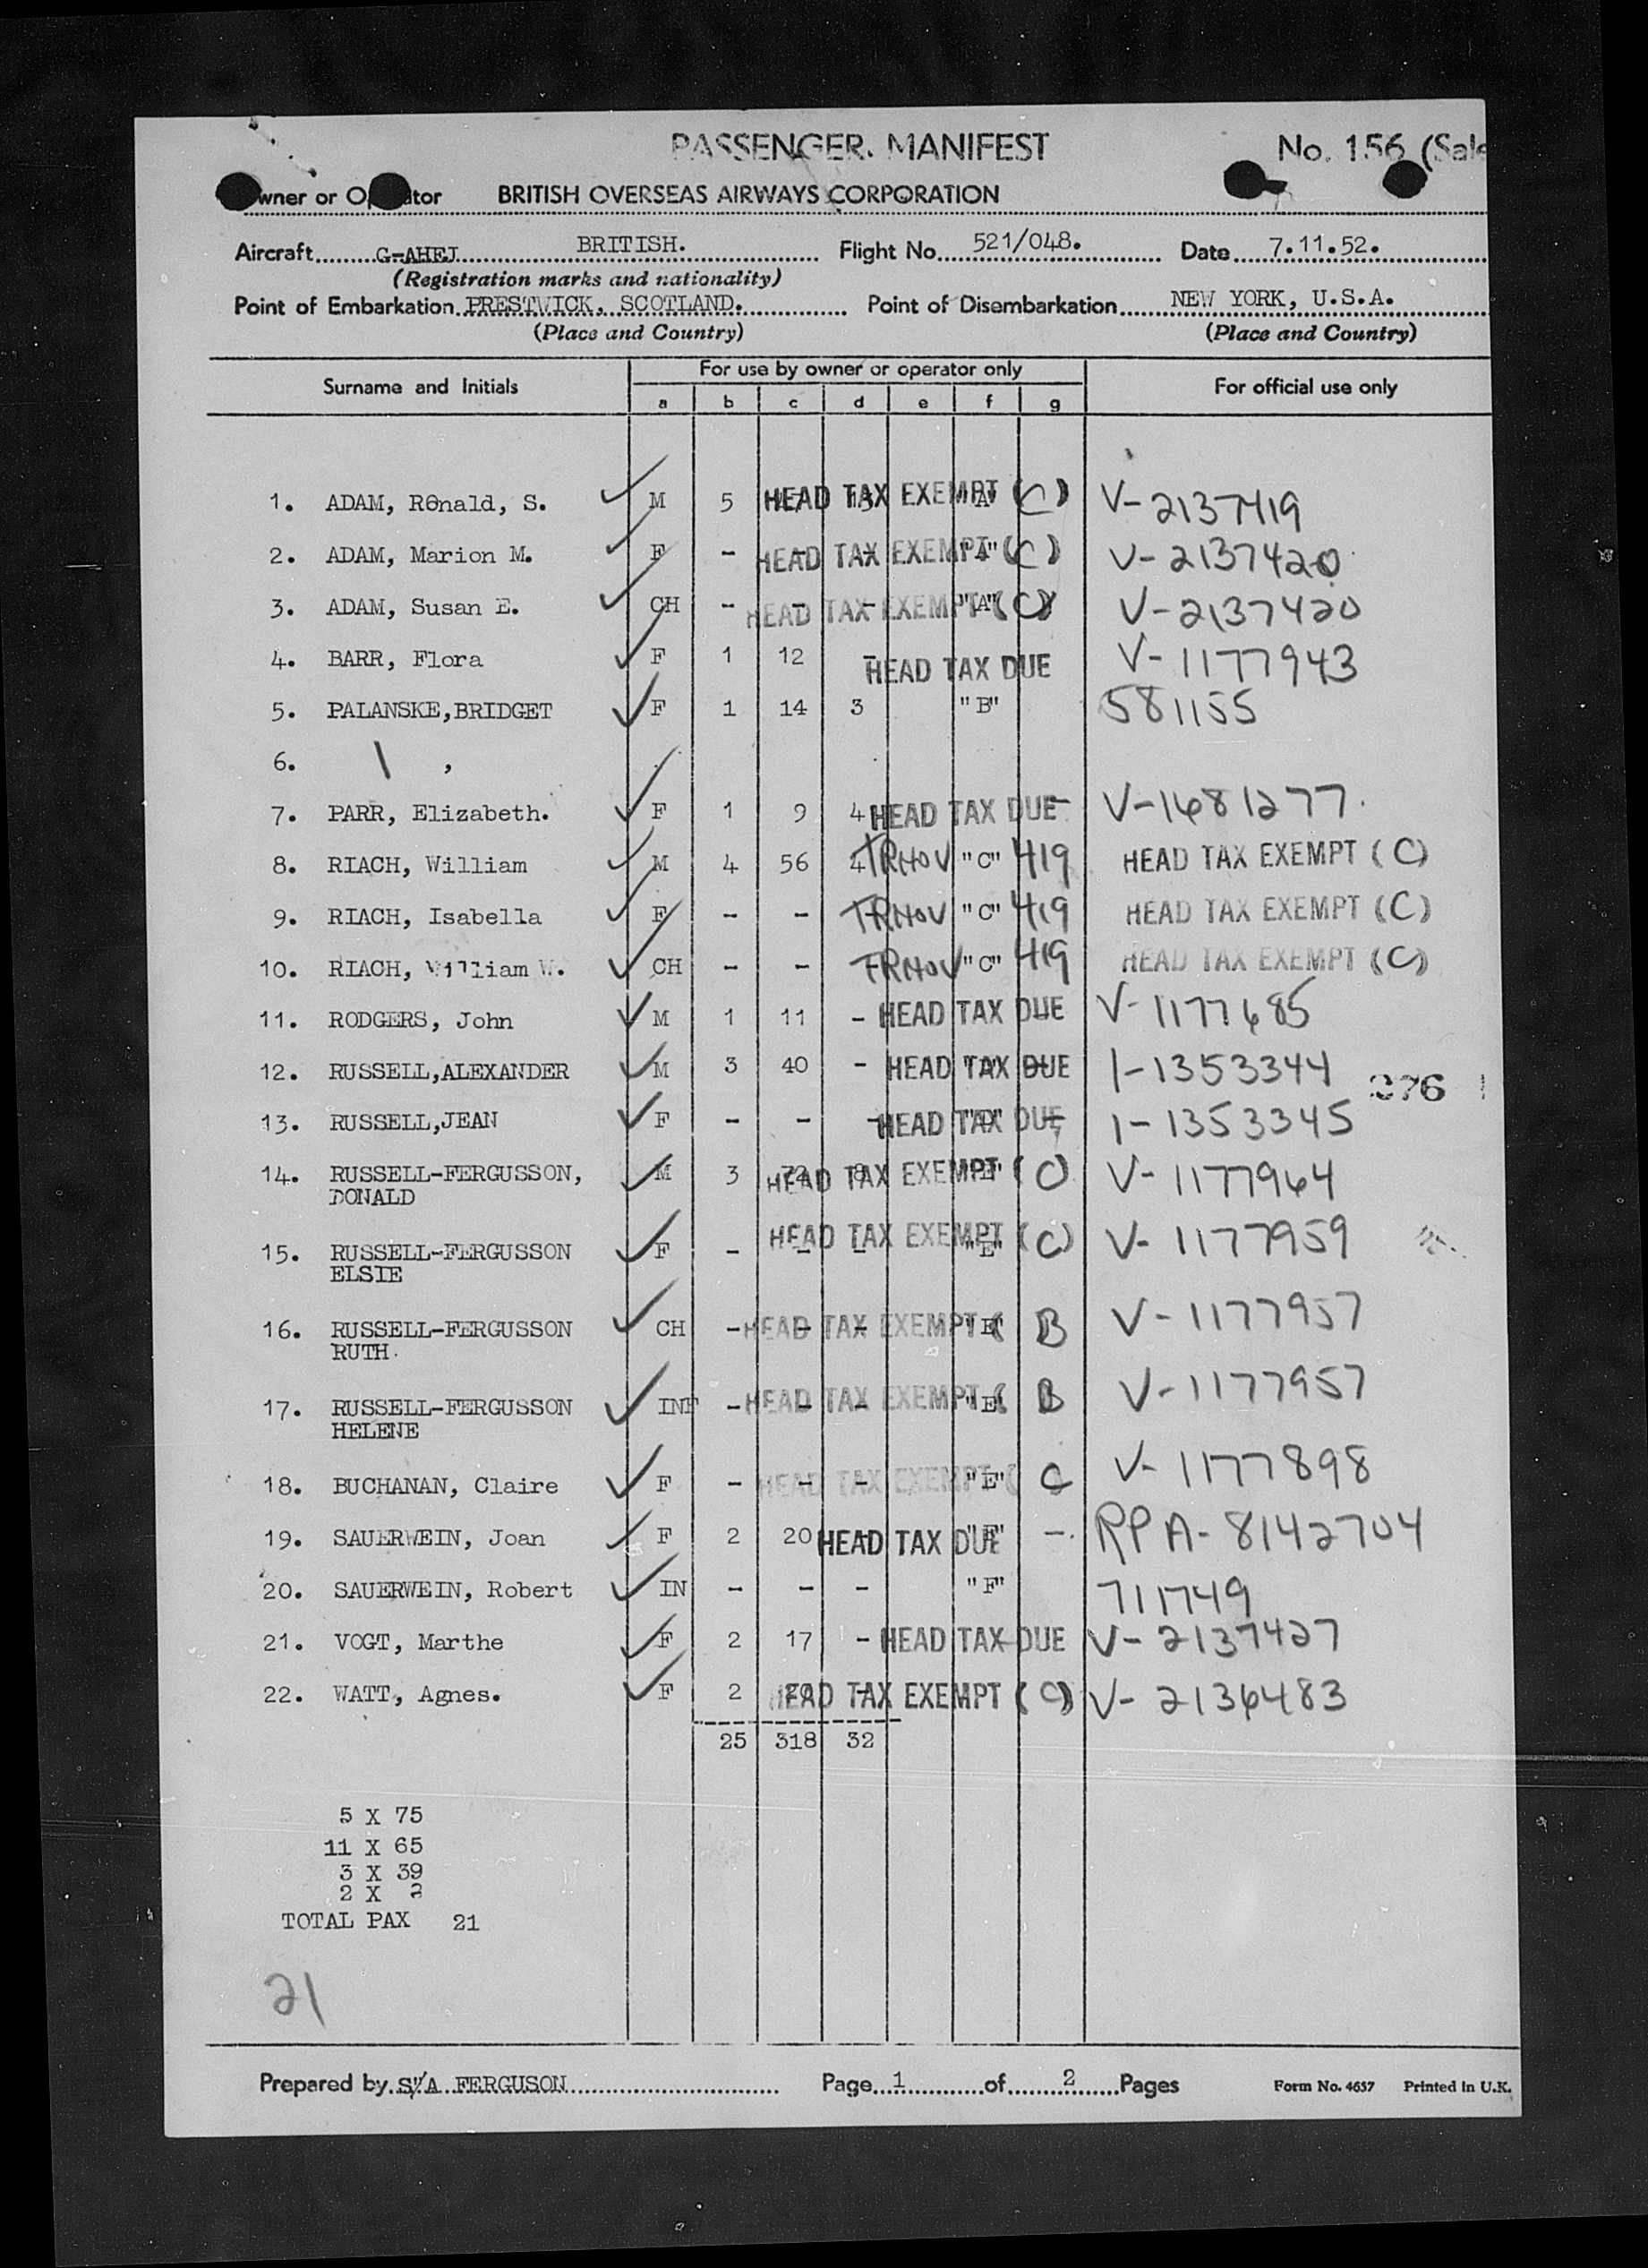 PASSENGER. MANIFEST No. 156 (Sale
wner or Op ator BRITISH OVERSEAS AIRWAYS CORPORATION
Aircraft G-AHEJ BRITISH. Flight No. 521/048. Date 7.11.52.
(Registration marks and nationality)
Point of Embarkation PRESTWICK, SCOTLAND. Point of Disembarkation NEW YORK, U.S.A.
(Place and Country) (Place and Country)
Surname and Initials For use by owner or operator only For official use only
a b c d e f g
1. ADAM, Ronald, S. M 5 HEAD TAX EXEMPT (C) V-2137419
2. ADAM, Marion M. F - - - "A" HEAD TAX EXEMPT (C) V-2137420
3. ADAM, Susan E. CH - - - "A" HEAD TAX EXEMPT (C) V-2137420
4. BARR, Flora F 1 12 - HEAD TAX DUE V-1177943
5. PALANSKE,BRIDGET F 1 14 3 "B" 581155
6. ,
7. PARR, Elizabeth. F 1 9 4 HEAD TAX DUE V-1681277
8. RIACH, William M 4 56 4 TRHOV "C" 419 HEAD TAX EXEMPT (C)
9. RIACH, Isabella F - - TRHOV "C" 419 HEAD TAX EXEMPT (C)
10. RIACH, William W. CH - - TRHOV "C" 419 HEAD TAX EXEMPT (C)
11. RODGERS, John M 1 11 - HEAD TAX DUE V-1177685
12. RUSSELL,ALEXANDER M 3 40 - HEAD TAX DUE 1-1353344
376
13. RUSSELL,JEAN F - - - HEAD TAX DUE 1-1353345
14. RUSSELL-FERGUSSON, M 3 72 8 HEAD TAX EXEMPT (C) V-1177964
DONALD
15. RUSSELL-FERGUSSON F - - - "E" HEAD TAX EXEMPT (C) V-1177959
ELSIE
16. RUSSELL-FERGUSSON CH - - - "E" HEAD TAX EXEMPT ( B V-1177957
RUTH.
17. RUSSELL-FERGUSSON INF - - - "E" HEAD TAX EXEMPT ( B V-1177957
HELENE
18. BUCHANAN, Claire F - - - "E" HEAD TAX EXEMPT ( C V-1177898
19. SAUERWEIN, Joan F 2 20 - "F" HEAD TAX DUE - RPA-8142704
20. SAUERWEIN, Robert IN - - - "F" 711749
21. VOGT, Marthe F 2 17 - HEAD TAX DUE V-2137427
22. WATT, Agnes. F 2 HEAD TAX EXEMPT (C) V-2136483
25 318 32
5 X 75
11 X 65
3 X 39
2 X
TOTAL PAX 21
21
Prepared by S/A FERGUSON Page 1 of 2 Pages Form No. 4657 Printed in U.K.